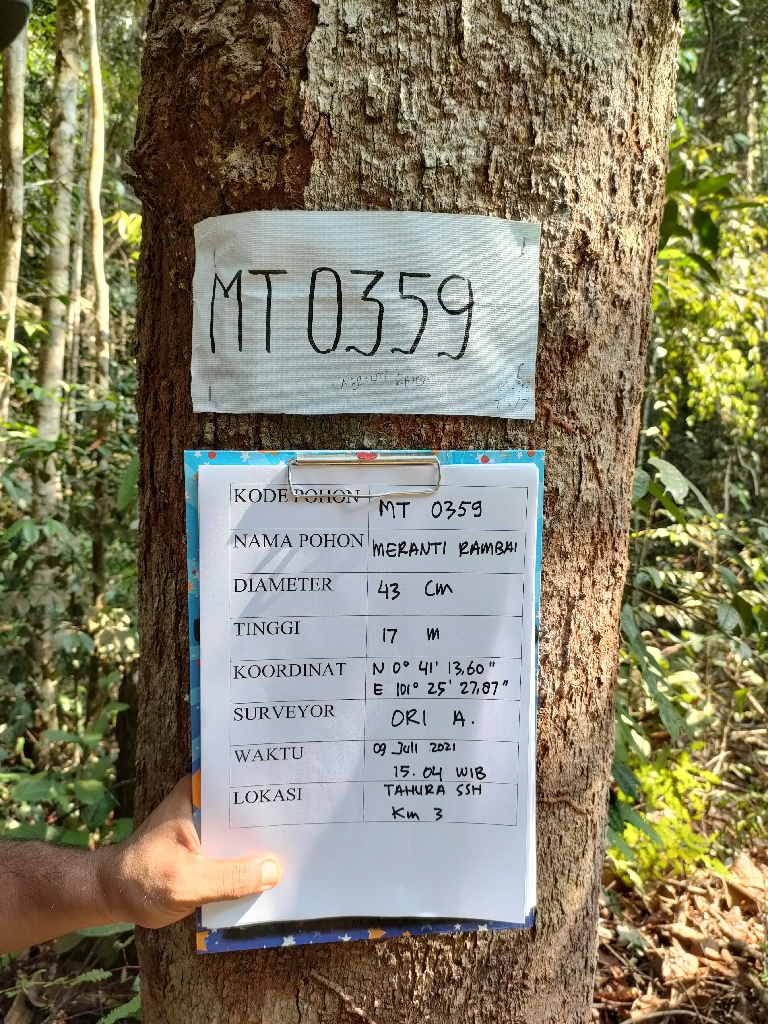 MT 0359
MERANTI RAMBAI
KODE POHON MT 0359
NAMA POHON MERANTI RAMBAI
DIAMETER 43 CM
TINGGI 17 m
KOORDINAT N 0° 41' 13,60"
E 101° 25' 27,07"
SURVEYOR ORI A.
WAKTU 09 Juli 2021
15.04 WIB
LOKASI TAHURA SSH
Km 3